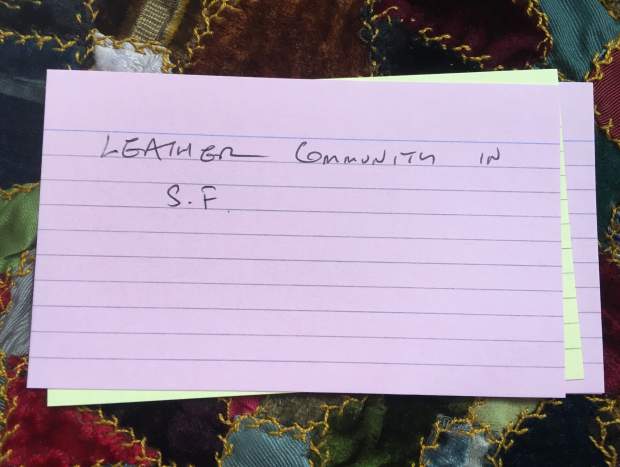 LEATHER COMMUNITY IN
S.F.